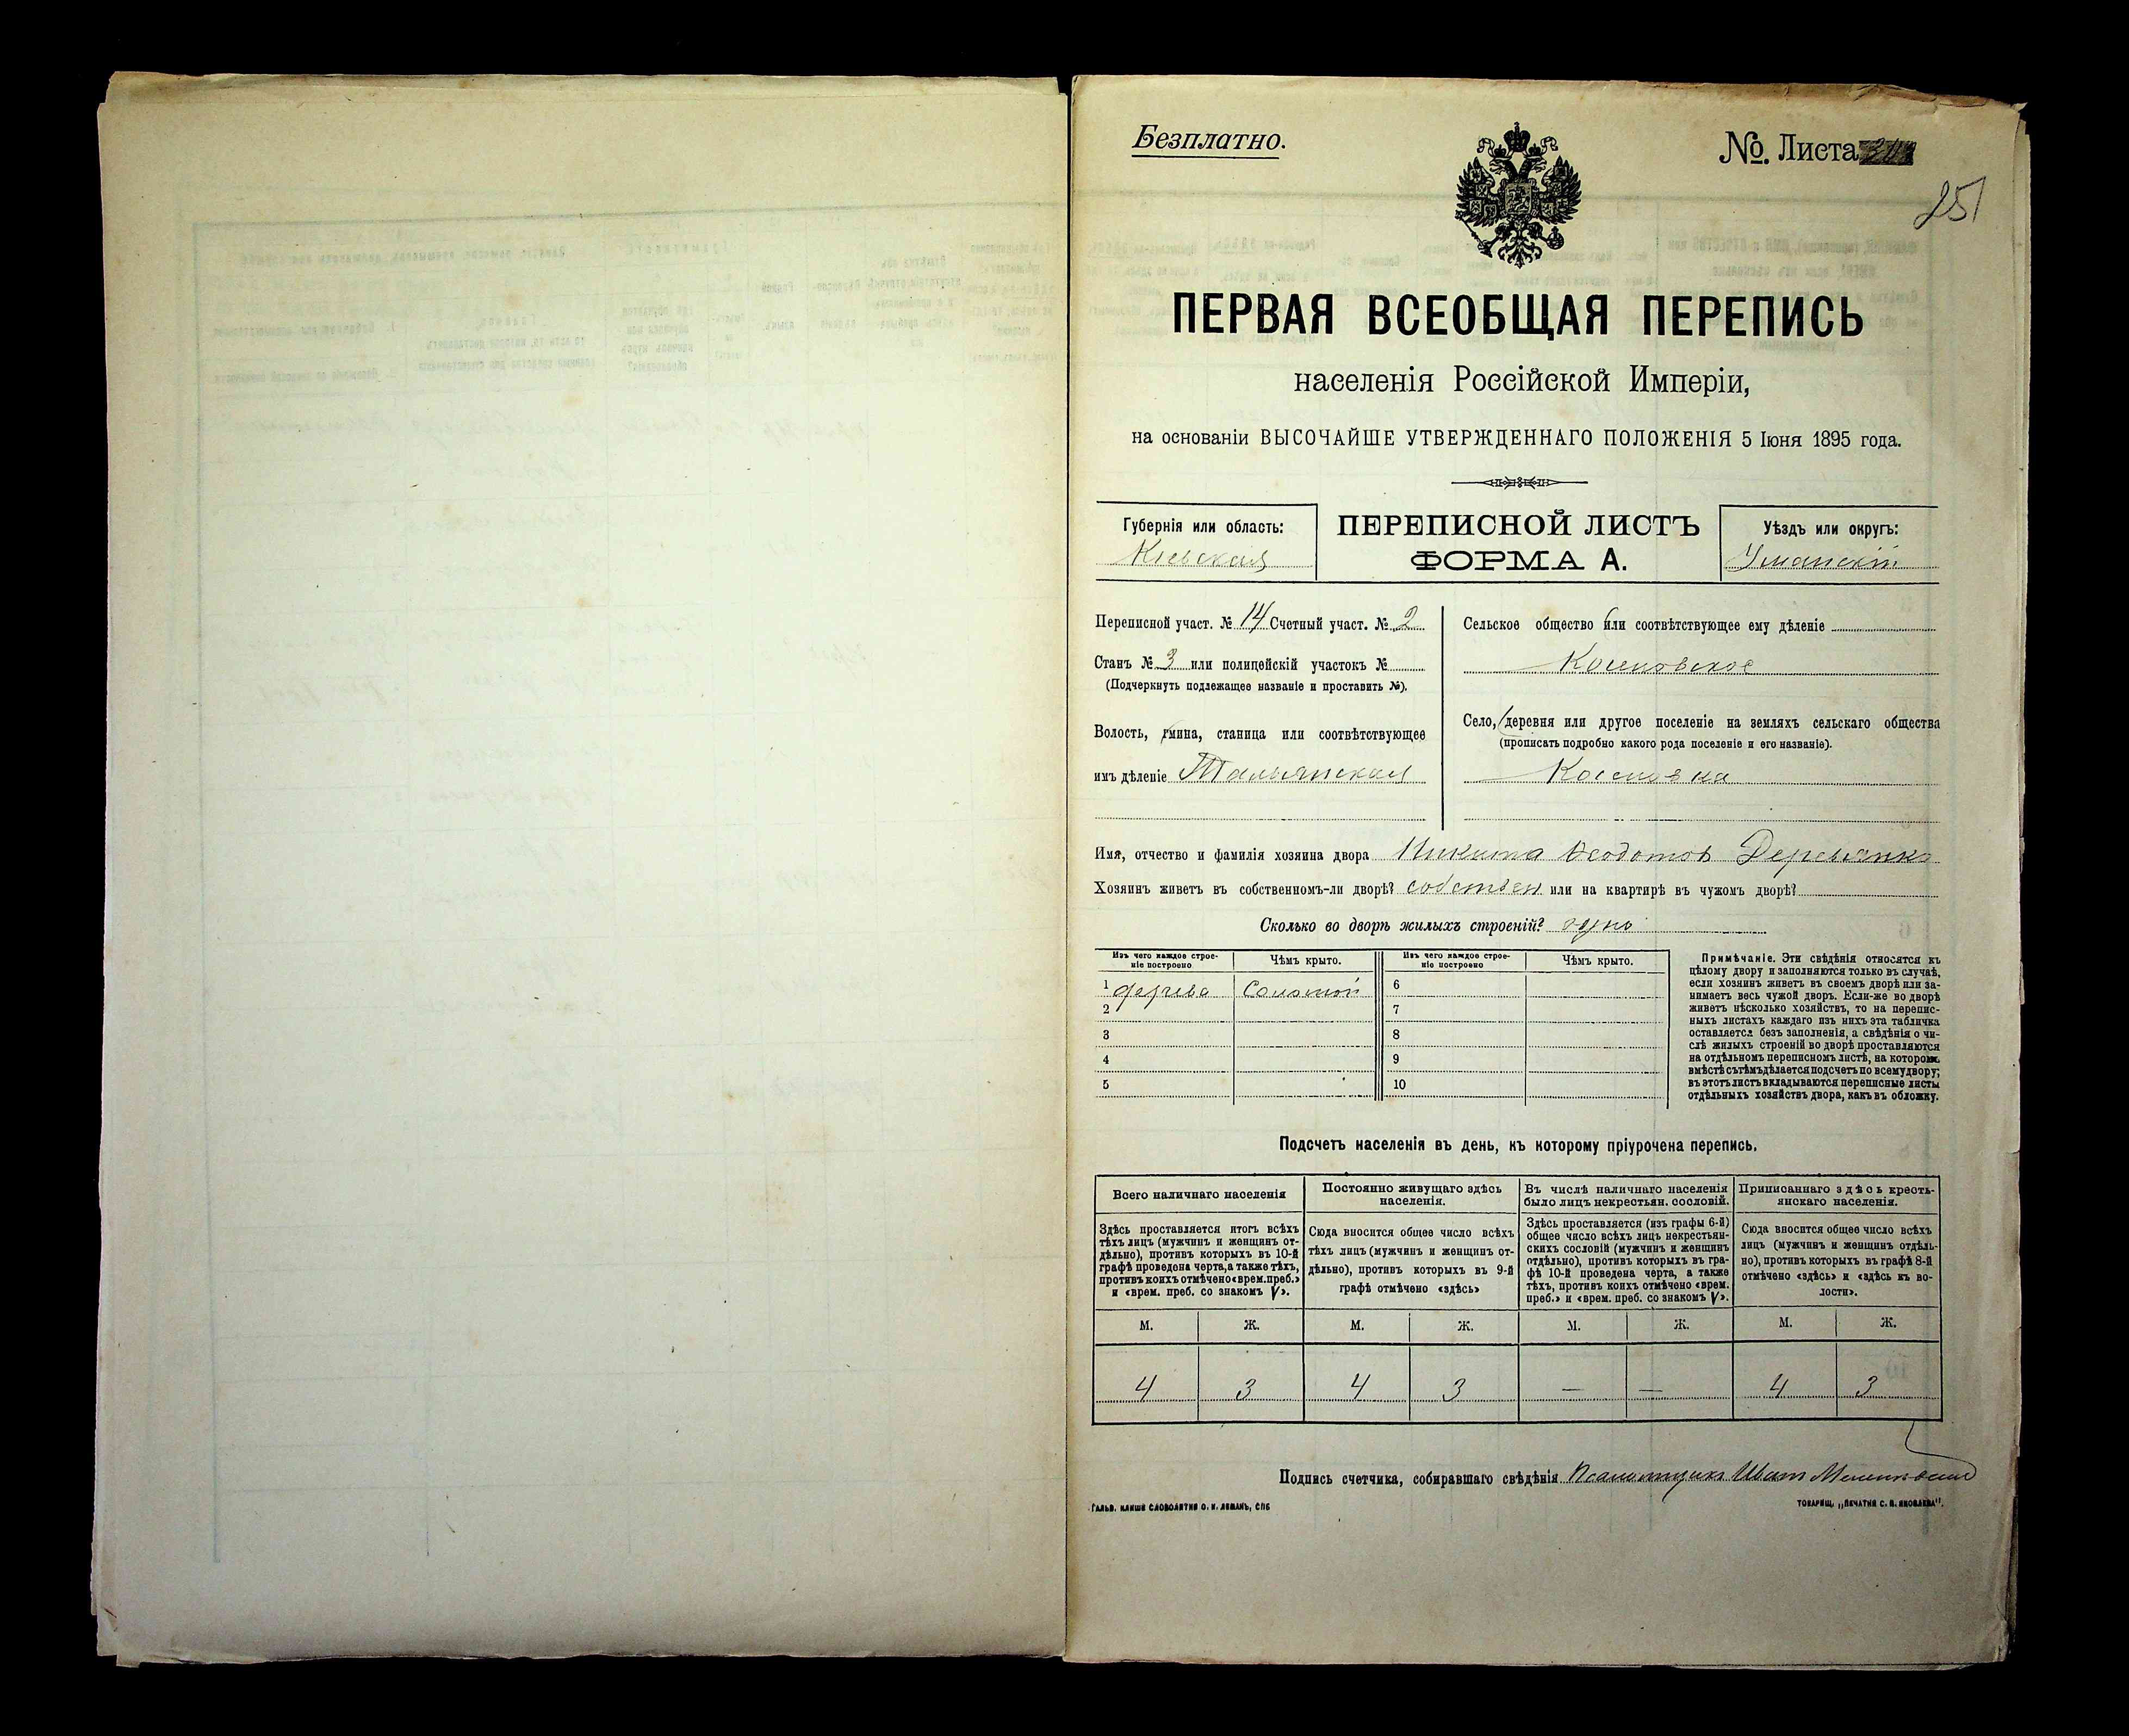 Безплатно.
№. Листа
251
ПЕРВАЯ ВСЕОБЩАЯ ПЕРЕПИСЬ
населенія Россійской Имперіи,
на основаніи ВЫСОЧАЙШЕ УТВЕРЖДЕННАГО ПОЛОЖЕНІЯ 5 Іюня 1895 года.
Губернія или область:
Кіевская
ПЕРЕПИСНОЙ ЛИСТЪ
ФОРМА А.
Уѣздъ или округъ:
Уманскій
Переписной участ. № 14 Счетный участ. № 2
Станъ № 3 или полицейскій участокъ №
(Подчеркнуть подлежащее названіе и проставить №).
Волость, гмина, станица или соотвѣтствующее
имъ дѣленіе Тальянская
Сельское общество или соотвѣтствующее ему дѣленіе
Село, деревня или другое поселеніе на земляхъ сельскаго общества
(прописать подробно какого рода поселеніе и его названіе).
Имя, отчество и фамилія хозяина двора Никита Ѳеодотов Деревянко
Хозяинъ живетъ въ собственномъ-ли дворѣ? собствен или на квартирѣ въ чужомъ дворѣ?
Сколько во дворѣ жилыхъ строеній? одно
Изъ чего каждое строе-
ніе построено
Чѣмъ крыто.
Изъ чего каждое строе-
ніе построено
Чѣмъ крыто.
1 дерева Соломой 6
2 7
3 8
4 9
5 10
Примѣчаніе. Эти свѣдѣнія относятся къ
цѣлому двору и заполняются только въ случаѣ,
если хозяинъ живетъ въ своемъ дворѣ или за-
нимаетъ весь чужой дворъ. Если-же во дворѣ
живетъ нѣсколько хозяйствъ, то на перепис-
ныхъ листахъ каждаго изъ нихъ эта табличка
оставляется безъ заполненія, а свѣдѣнія о чи-
слѣ жилыхъ строеній во дворѣ проставляются
на отдѣльномъ переписномъ листѣ, на которомъ
вмѣстѣ съ тѣмъ дѣлается подсчетъ по всему двору;
въ этотъ листъ вкладываются переписные листы
отдѣльныхъ хозяйствъ двора, какъ въ обложку.
Подсчетъ населенія въ день, къ которому пріурочена перепись.
Всего наличнаго населенія
Здѣсь проставляется итогъ всѣхъ
тѣхъ лицъ (мужчинъ и женщинъ от-
дѣльно), противъ которыхъ въ 10-й
графѣ проведена черта, а также тѣхъ,
противъ коихъ отмѣчено «врем. преб.»
и «врем. преб. со знакомъ V».
Постоянно живущаго здѣсь
населенія.
Сюда вносится общее число всѣхъ
тѣхъ лицъ (мужчинъ и женщинъ от-
дѣльно), противъ которыхъ въ 9-й
графѣ отмѣчено «здѣсь»
Въ числѣ наличнаго населенія
было лицъ некрестьян. сословій.
Здѣсь проставляется (изъ графы 6-й)
общее число всѣхъ лицъ некрестьян-
скихъ сословій (мужчинъ и женщинъ
отдѣльно), противъ которыхъ въ гра-
фѣ 10-й проведена черта, а также
тѣхъ, противъ коихъ отмѣчено «врем.
преб.» и «врем. преб. со знакомъ V».
Приписаннаго здѣсь кресть-
янскаго населенія.
Сюда вносится общее число всѣхъ
лицъ (мужчинъ и женщинъ отдѣль-
но), противъ которыхъ въ графѣ 8-й
отмѣчено «здѣсь» и «здѣсь къ во-
лости».
М. Ж. М. Ж. М. Ж. М. Ж.
4 3 4 3 — — 4 3
Подпись счетчика, собиравшаго свѣдѣнія Псаломщикъ Иван
Гальв. клише словолитни О. И. Леманъ, СПБ
Товарищ. „Печатня С. П. Яковлева".